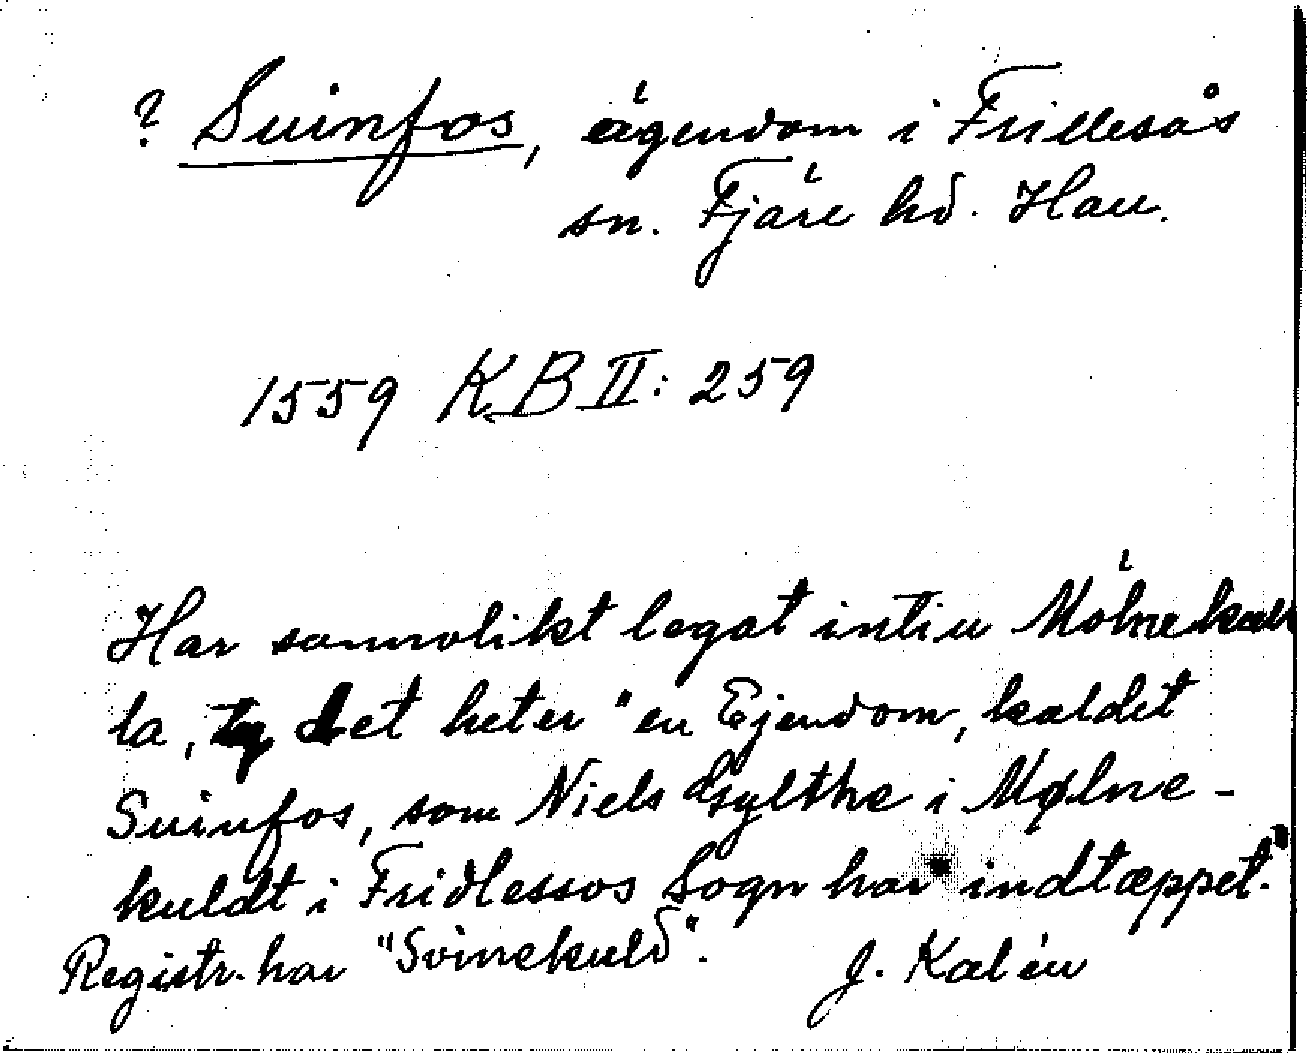 ? Suinfos, ägendom i Frillesås
sn. Fjäre hd. Hall.
1559 KB II: 259
Har sannolikt legat intill Mölnekul
la, ty det heter "en Ejendom, kaldet
Suinfos, som Niels Gylthe i Mølne-
kuldt i Fridlessos Sogn har indtæppet."
Registr. har "Svinekuld".
J. Kalén